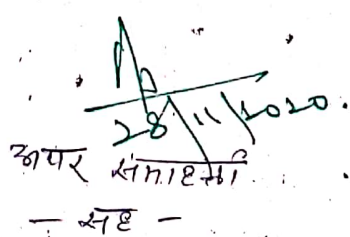 28/11/2020.
अपर समाहर्ता
- सह -